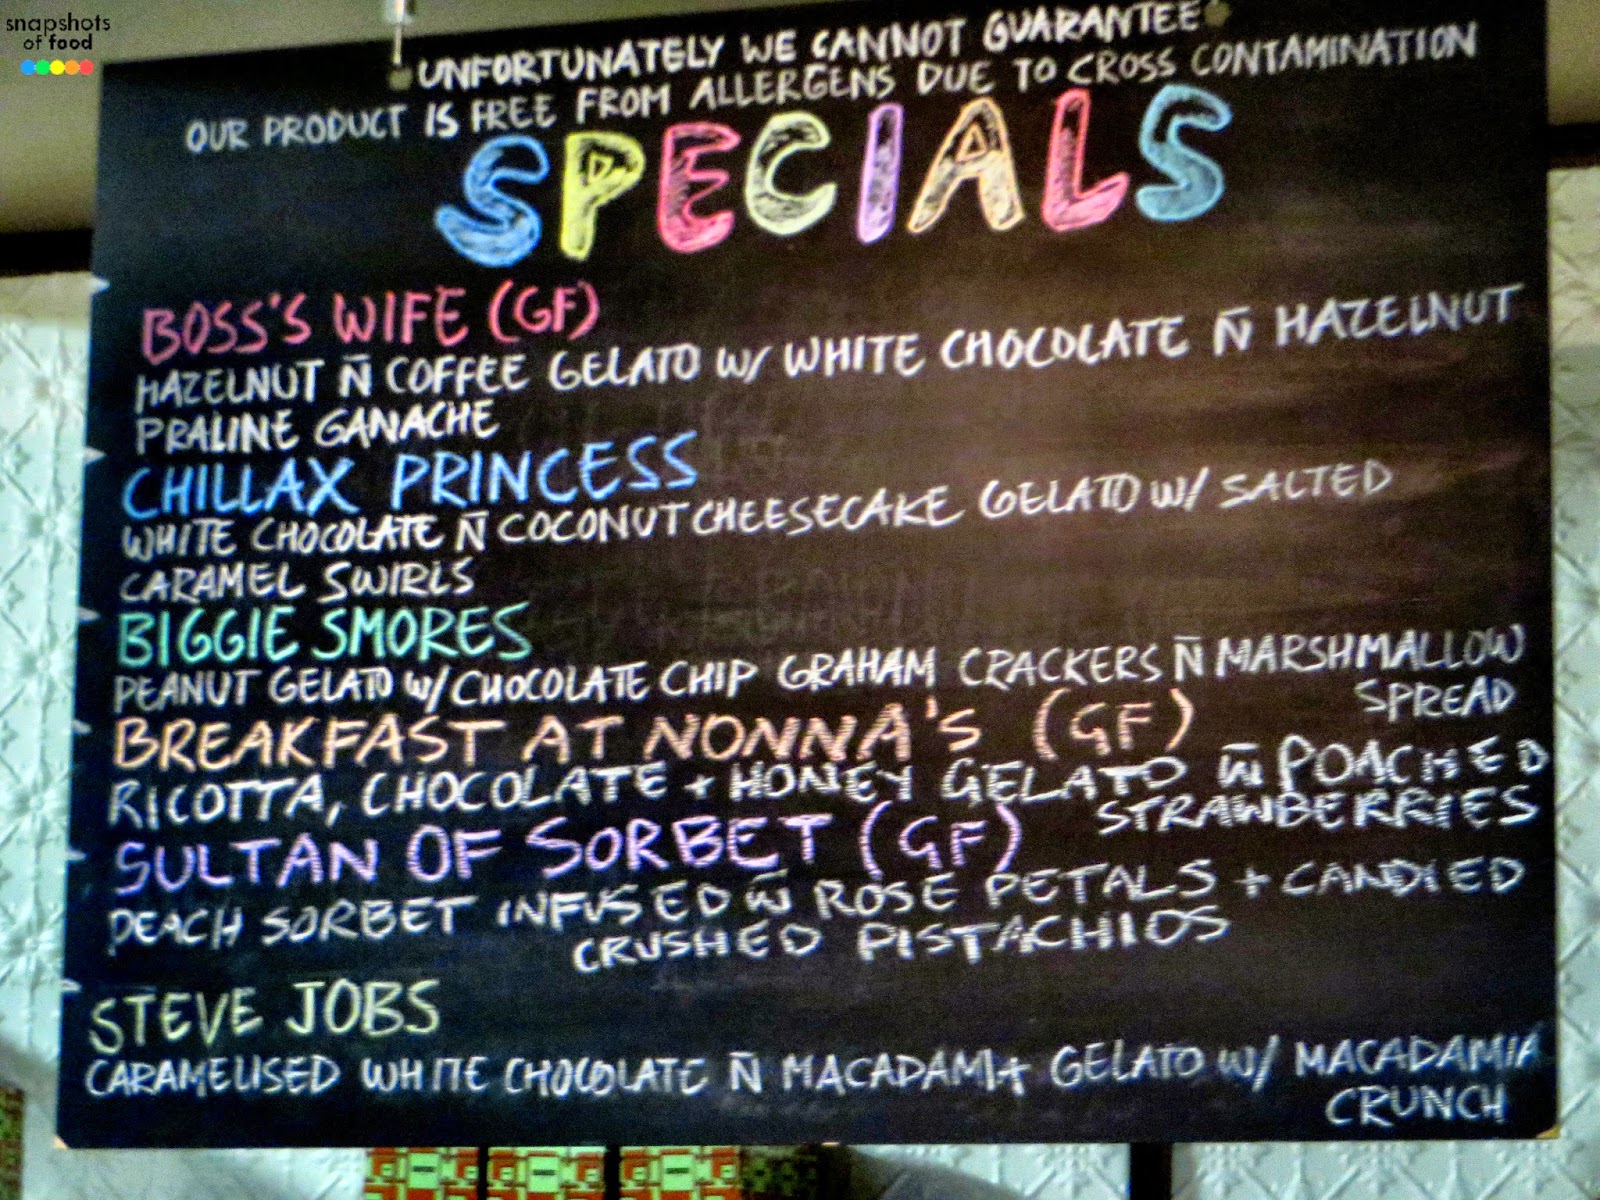 snapshots
of food
UNFORTUNATELY WE CANNOT GUARANTEE
OUR PRODUCT IS FREE FROM ALLERGENS DUE TO CROSS CONTAMINATION
SPECIALS
BOSS'S WIFE (GF)
HAZELNUT N̄ COFFEE GELATO W/ WHITE CHOCOLATE N̄ HAZELNUT
PRALINE GANACHE
CHILLAX PRINCESS
WHITE CHOCOLATE N̄ COCONUT CHEESECAKE GELATO W/ SALTED
CARAMEL SWIRLS
BIGGIE SMORES
PEANUT GELATO W/ CHOCOLATE CHIP GRAHAM CRACKERS N̄ MARSHMALLOW
SPREAD
BREAKFAST AT NONNA'S (GF)
RICOTTA, CHOCOLATE + HONEY GELATO W̄ POACHED
STRAWBERRIES
SULTAN OF SORBET (GF)
PEACH SORBET INFUSED W̄ ROSE PETALS + CANDIED
CRUSHED PISTACHIOS
STEVE JOBS
CARAMELISED WHITE CHOCOLATE N̄ MACADAMIA GELATO W/ MACADAMIA
CRUNCH